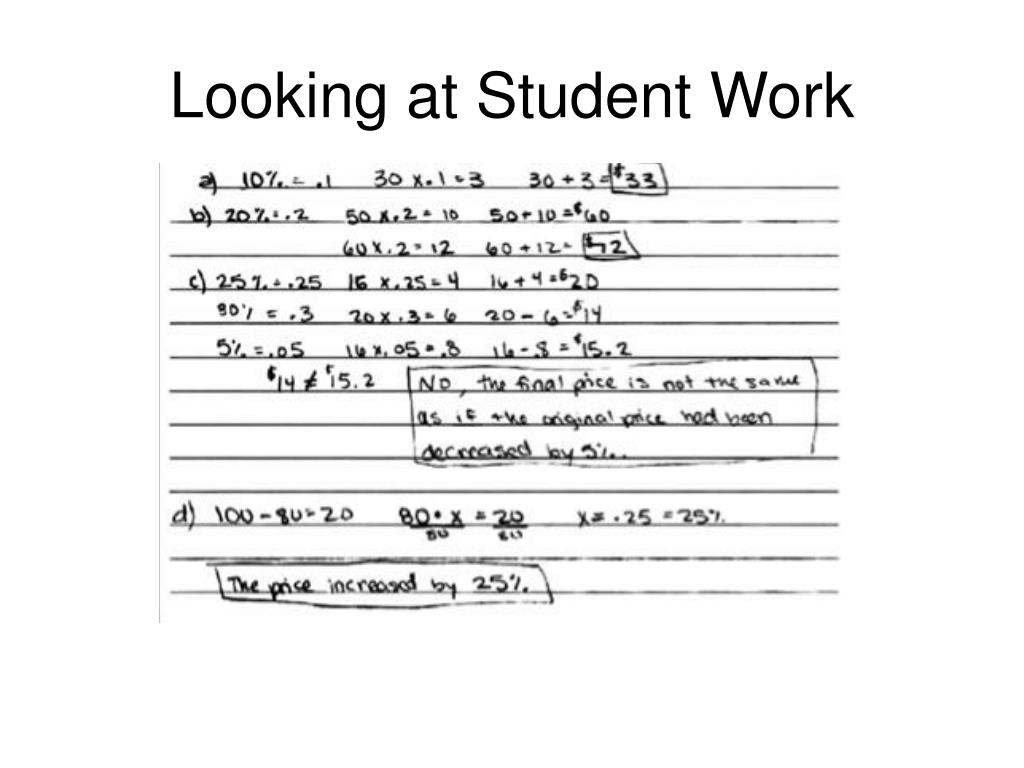 Looking at Student Work
a) 10% = .1 30 x .1 = 3 30 + 3 = $33
b) 20% = .2 50 x .2 = 10 50 + 10 = $60
60 x .2 = 12 60 + 12 = $72
c) 25% = .25 16 x .25 = 4 16 + 4 = $20
30% = .3 20 x .3 = 6 20 - 6 = $14
5% = .05 16 x .05 = .8 16 - .8 = $15.2
$14 ≠ $15.2 No, the final price is not the same
as if the original price had been
decreased by 5%.
d) 100 - 80 = 20 80 • x = 20 x = .25 = 25%
80 80
The price increased by 25%.